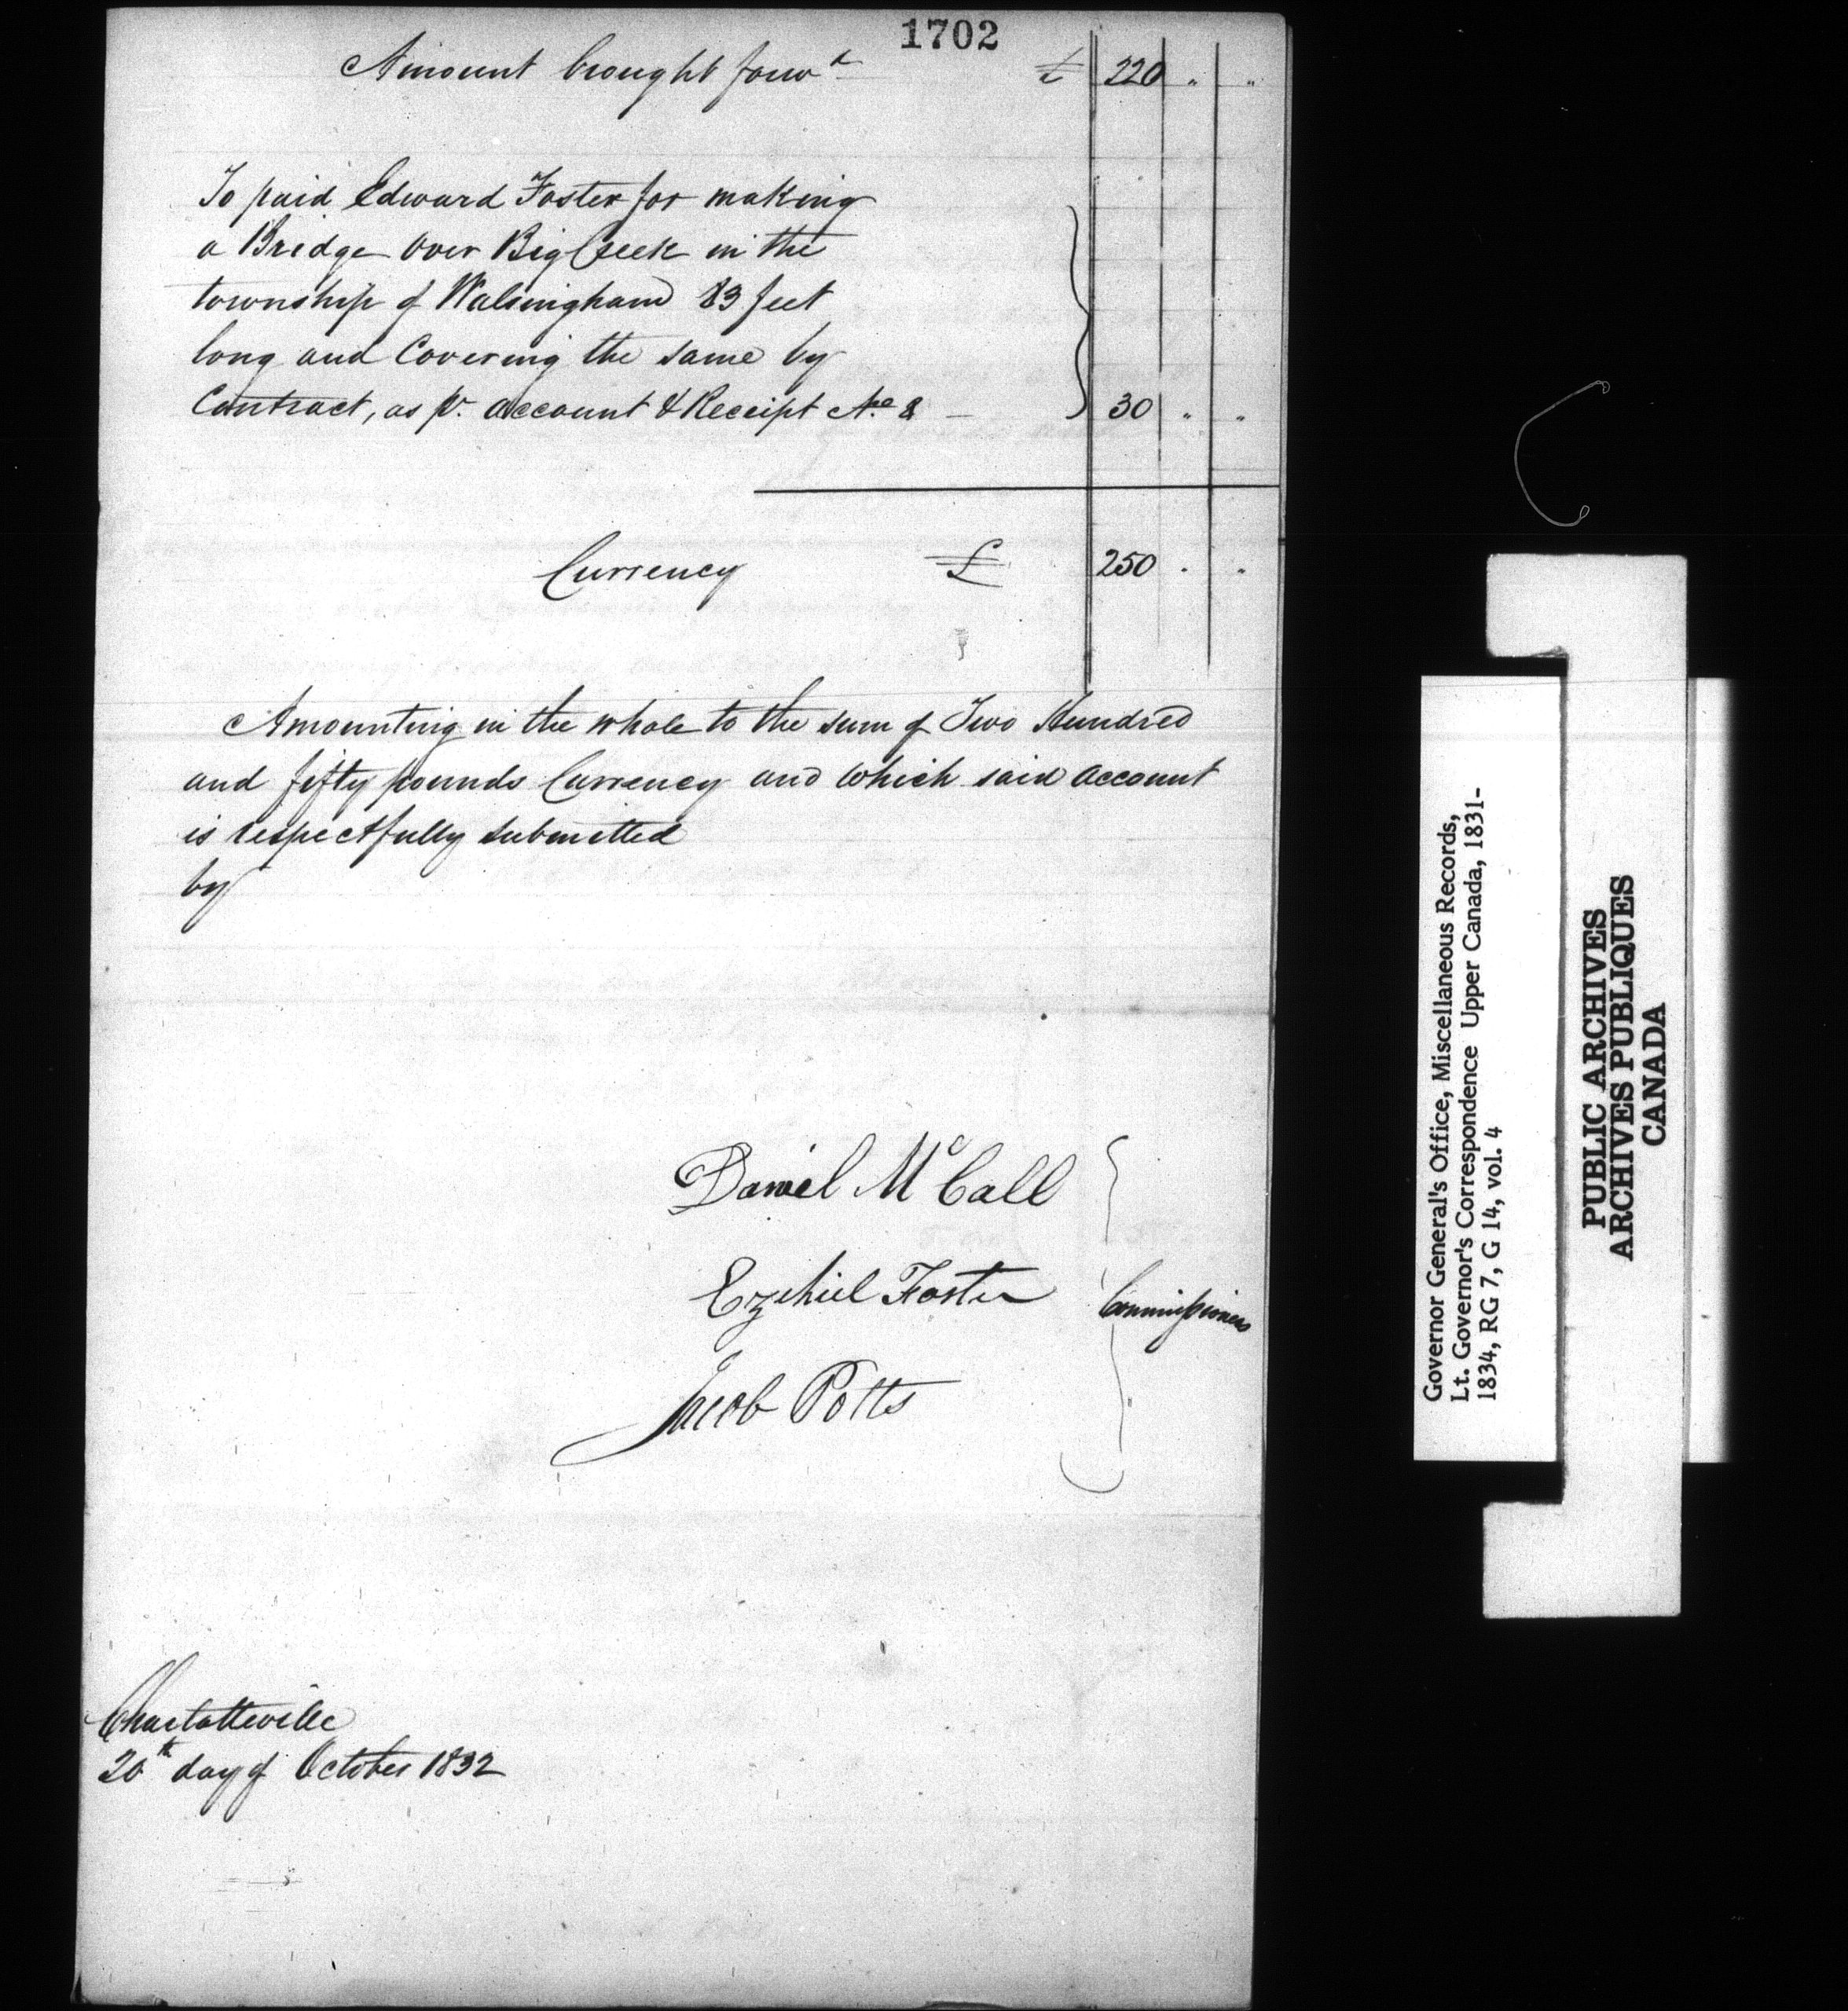 1702
Amount brought forwd £ 220 " "
To paid Edward Foster for making
a Bridge over Big Creek in the
township of Walsingham 83 feet
long and Covering the same by
Contract, as pr. account & Receipt No 8 - 30 " "
Currency £ 250 " "
Amounting in the whole to the sum of Two Hundred
and fifty pounds Currency and which said account
is respectfully submitted
by
Daniel McCall
Ezekiel Foster Commissioners
Jacob Potts
Charlotteville
20th day of October 1832
Governor General's Office, Miscellaneous Records,
Lt. Governor's Correspondence Upper Canada, 1831-
1834, RG 7, G 14, vol. 4
PUBLIC ARCHIVES
ARCHIVES PUBLIQUES
CANADA